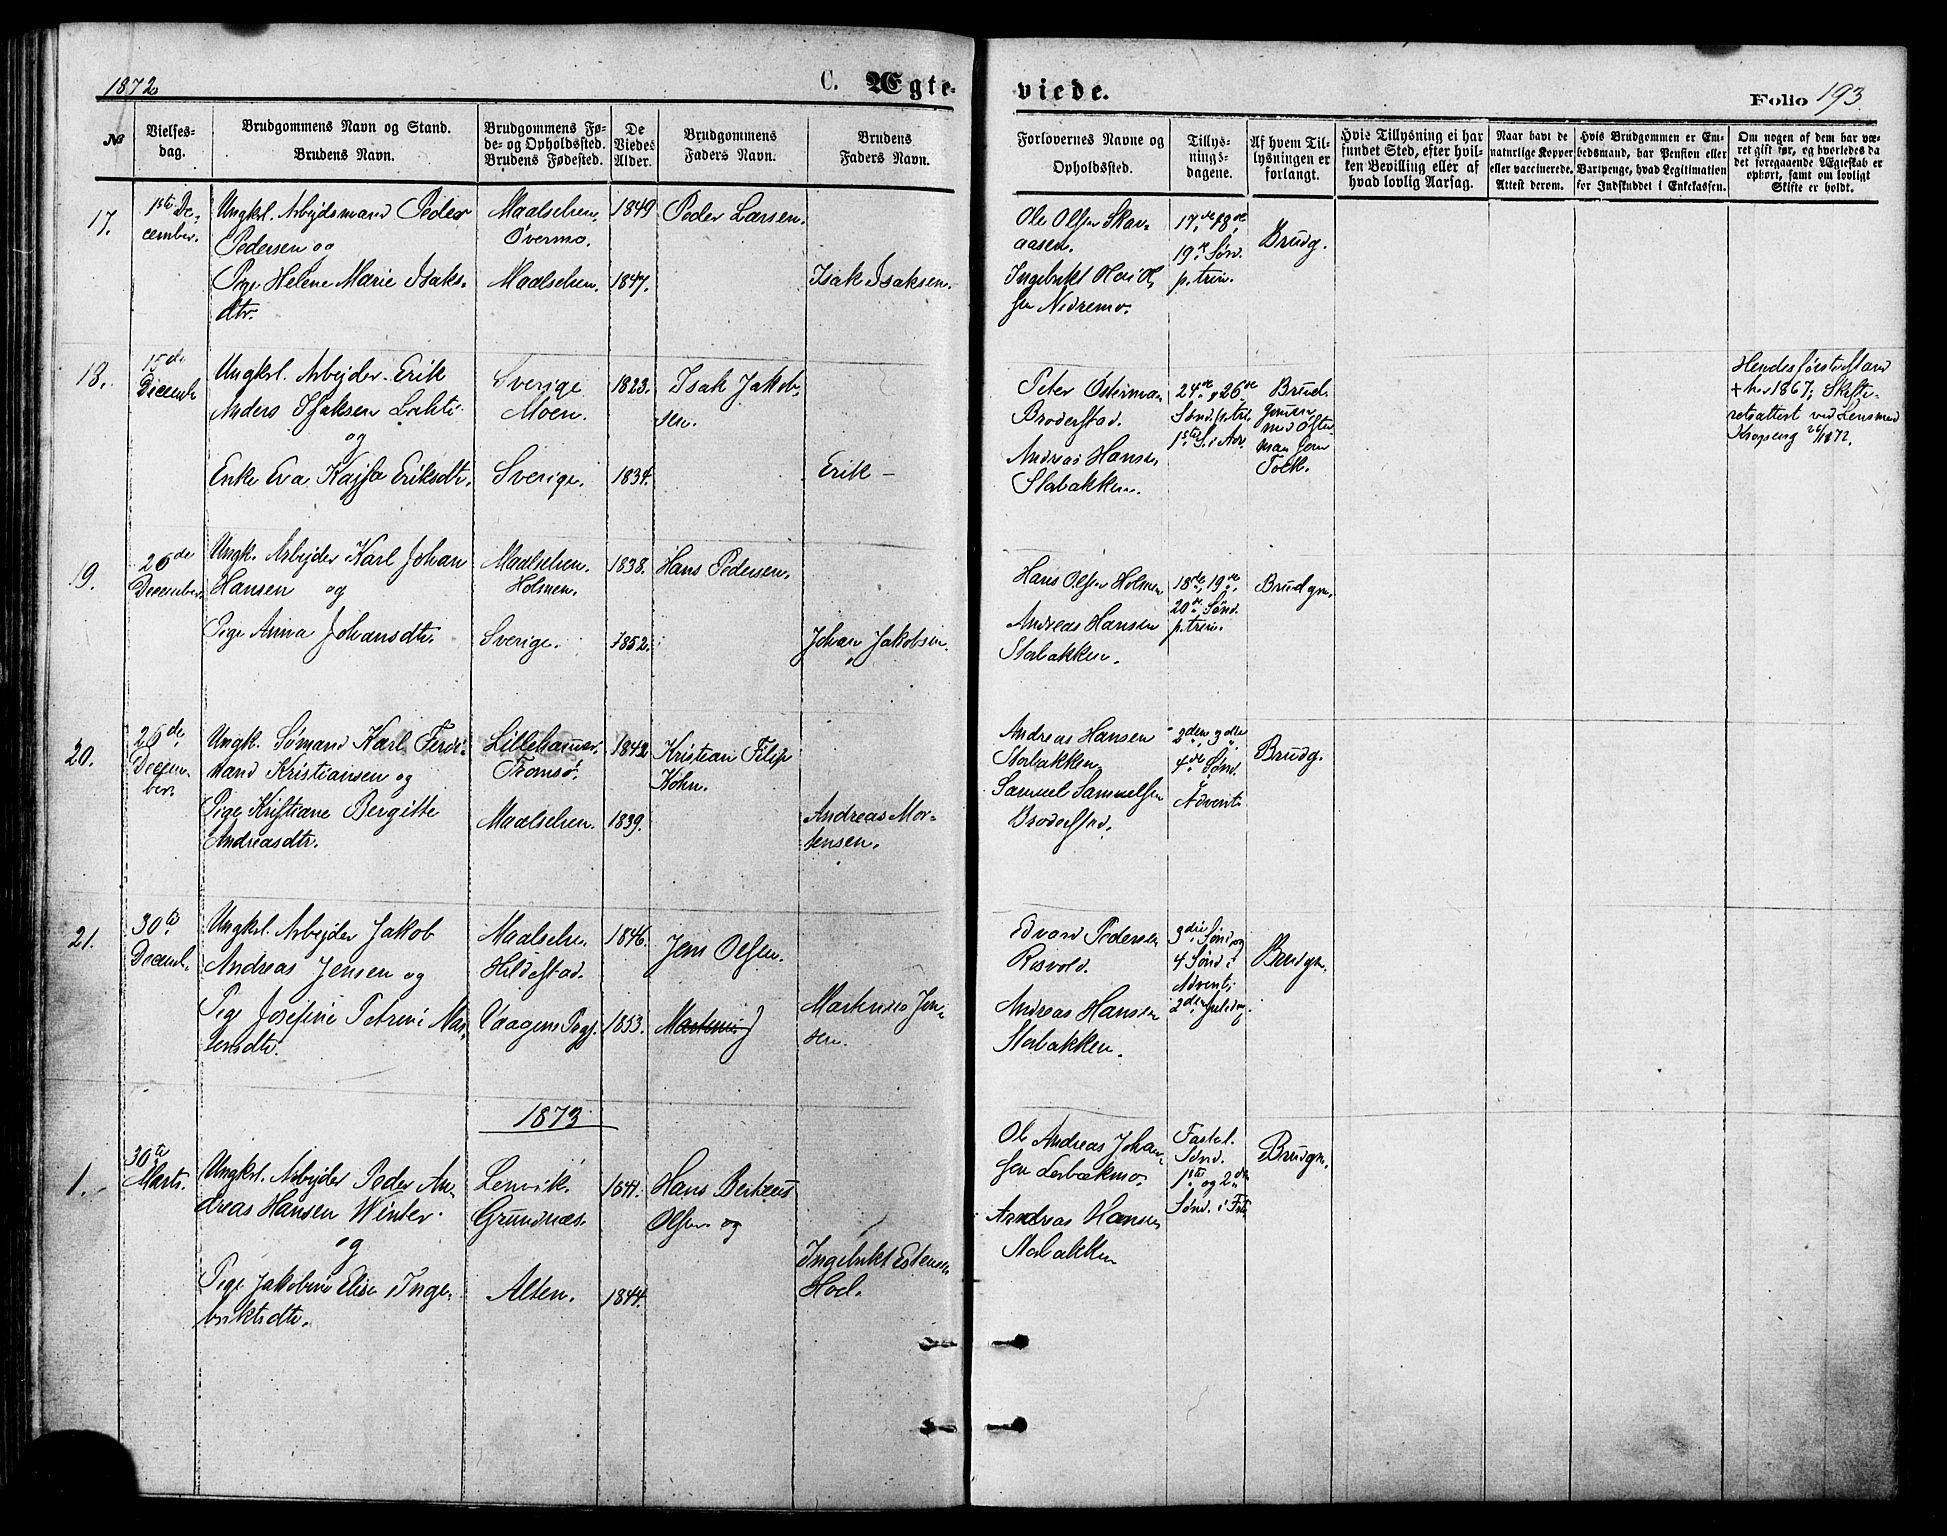 1872
C. Ægte-
viede.
Folio 193.
№
Vielses-
dag.
Brudgommens Navn og Stand.
Brudens Navn.
Brudgommens Fø-
de- og Opholdssted.
Brudens Fødested.
De
Viedes
Alder.
Brudgommens
Faders Navn.
Brudens
Faders Navn.
Forlovernes Navne og
Opholdssted.
Tillys-
nings-
dagene.
Af hvem Til-
lysningen er
forlangt.
Hvis Tillysning ei har
fundet Sted, efter hvil-
ken Bevilling eller af
hvad lovlig Aarsag.
Naar havt de
naturlige Kopper
eller vaccinerede.
Attest derom.
Hvis Brudgommen er Em-
bedsmand, har Pension eller
Vartpenge, hvad Legitimation
for Indskuddet i Enkekassen.
Om nogen af dem har væ-
ret gift før, og hvorledes da
det foregaaende Ægteskab er
ophørt, samt om lovligt
Skifte er holdt.
17.
1ste De-
cember.
Ungkrl. Arbejdsmand Peder
Pedersen og
Pige Helene Marie Isaks-
dtr.
Maalselven.
Øvermo.
Maalselven.
1849
1847.
Peder Larsen.
Isak Isaksen.
Ole Olsen Skav-
aasen.
Ingebrikt Ol-
sen Nedremo.
17de, 18de,
19de Sønd.
p. trin.
Brudg.
18.
15de
Decemb.
Ungkrl. Arbejder Erik
Anders Isaksen Lahti
og
Enke Eva Kajsa Eriksdtr.
Sverige
Moen.
Sverige.
1823.
1834.
Isak Jakob-
sen.
Erik —
Peter Österman
Broderstad.
Andreas Hansen
Storbakken.
24de, 26de
Sønd. p. tri.
1ste S. i Adv.
Brud-
gommen
med Öster-
man som
Tolk.
Hendes første Mand
+ her 1867; Skifte-
retsattest ved Lensmd
26/11 1872.
19.
26de
December.
Ungk. Arbejder Karl Johan
Hansen og
Pige Anna Johansdtr.
Maalselven.
Holmen.
Sverige.
1838.
1852.
Hans Pedersen.
Johan Jakobsen.
Hans Olsen Holmen
Andreas Hansen
Storbakken.
18de, 19de,
20de Sønd.
p. trin.
Brudgm.
20.
26de
Decem-
ber.
Ungk. Sømand Karl Ferdi-
nand Kristiansen og
Pige Kristiane Bergitte
Andreasdtr.
Lillehammer.
Tromsø.
Maalselven.
1842
1839.
Kristian Filip
Køhn.
Andreas Mor-
tensen.
Andreas Hansen
Storbakken
Samuel Samuelsen
Broderstad.
2den, 3die,
4de Sønd.
Advent
Brudg.
21.
30te
Decemb.
Ungkrl. Arbejder Jakob
Andreas Jensen og
Pige Josefine Petrine Mar-
tensdtr.
Maalselven
Hildestad.
Vaagens Pgj.
1846.
1853.
Jens Olsen.
Jen-
sen.
Edvard Pedersen
Rosvold.
Andreas Hansen
Storbakken.
3die Sønd. og
4 Sønd. i
Advent;
2den Juledag.
Brudgm.
1873
1.
30te
Marts.
Ungkrl. Arbejder Peder An-
dreas Hansen Winter
og
Pige Jakobine Elise Inge-
briktsdtr.
Lenvik.
Grundnæs.
Alten.
1841.
1844.
Hans Berteus
Olsen og
Ingebrikt Estensen
Hoel.
Ole Andreas Johan-
sen
Andreas Hansen
Storbakken
Fastel.
Sønd.
1ste og 2den
Sønd. i Fst.
Brudgm.